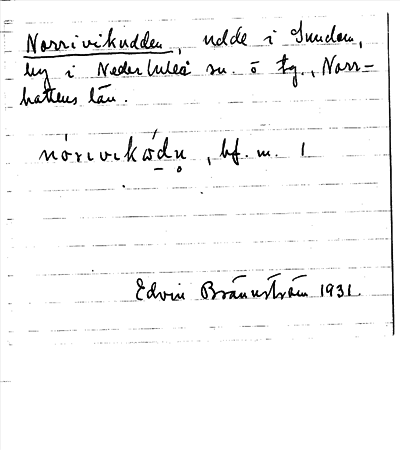 Norrivikudden, udde i Sundom,
by i Nederluleå sn. o tg., Norr-
bottens län.
nórivikǿdn̥, bf. m. 1
Edvin Brännström 1931.